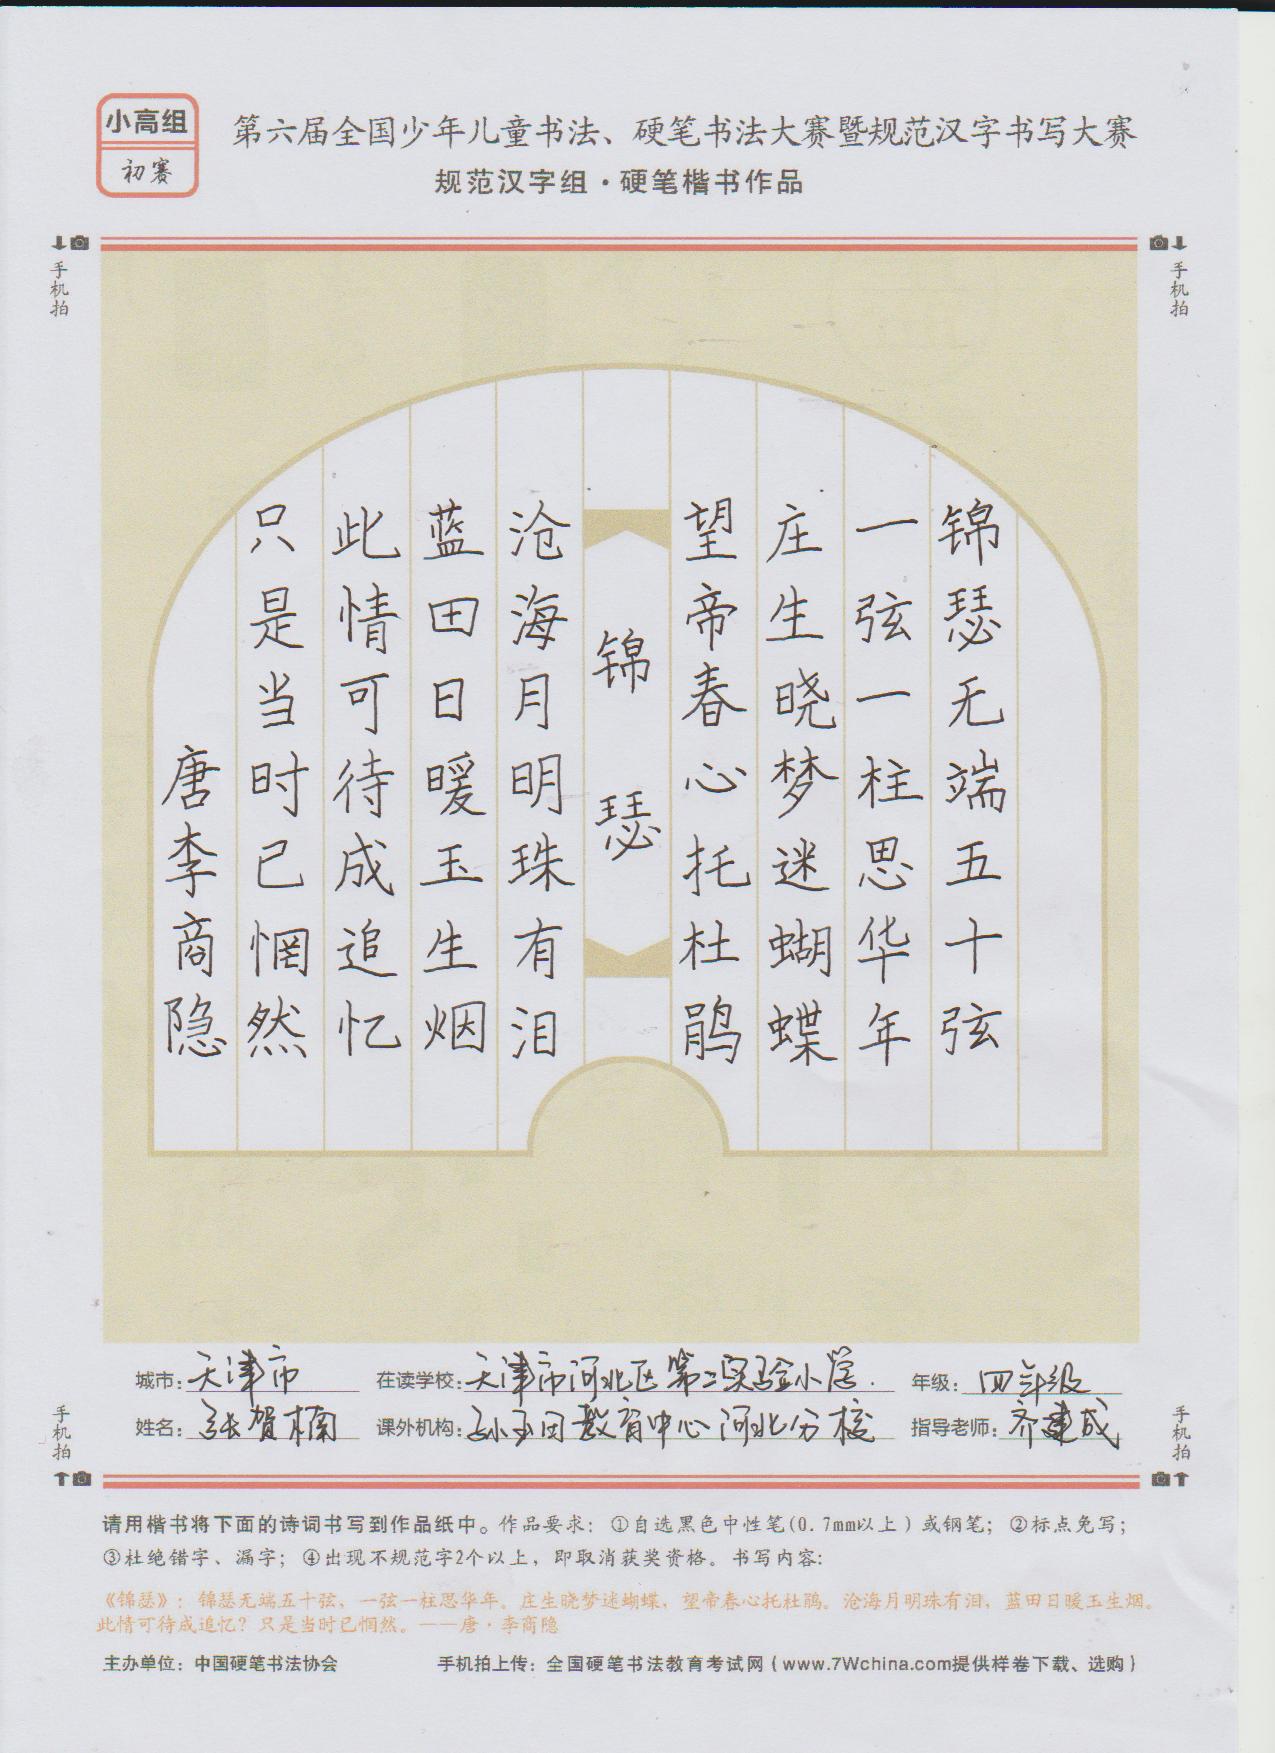 小高组
初赛
第六届全国少年儿童书法、硬笔书法大赛暨规范汉字书写大赛
规范汉字组·硬笔楷书作品
手机拍
手机拍
锦瑟无端五十弦
一弦一柱思华年
庄生晓梦迷蝴蝶
望帝春心托杜鹃
锦瑟
沧海月明珠有泪
蓝田日暖玉生烟
此情可待成追忆
只是当时已惘然
唐李商隐
城市：天津市 在读学校：天津市河北区第二实验小学. 年级：四年级
姓名：张贺楠 课外机构：孙玉田教育中心河北分校 指导老师：齐建成
手机拍
手机拍
请用楷书将下面的诗词书写到作品纸中。作品要求：①自选黑色中性笔(0.7mm以上)或钢笔；②标点免写；
③杜绝错字、漏字；④出现不规范字2个以上，即取消获奖资格。书写内容：
《锦瑟》：锦瑟无端五十弦，一弦一柱思华年。庄生晓梦迷蝴蝶，望帝春心托杜鹃。沧海月明珠有泪，蓝田日暖玉生烟。
此情可待成追忆？只是当时已惘然。——唐·李商隐
主办单位：中国硬笔书法协会 手机拍上传：全国硬笔书法教育考试网（www.7Wchina.com提供样卷下载、选购）